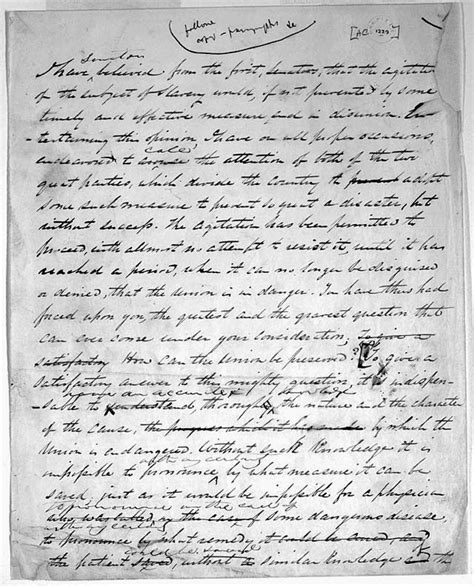 follow copy - paragraphs &c
[AC 1229]
Senators
I have, believed from the first, Senators, that the agitation
of the subject of slavery would, if not prevented by some
timely and effective measure, end in disunion. En-
tertaining this opinion, I have on all proper occasions,
call
endeavored to arouse the attention of both of the two
great parties, which divide the country to adopt
some such measure to prevent so great a disaster, but
without success. The agitation has been permitted to
proceed, with allmost no attempt to resist it, until it has
reached a period, when it can no longer be disguised
or denied, that the Union is in danger. You have thus had
forced upon you, the greatest and the gravest question that
can ever come under your consideration; To give a
satisfactory How can the Union be preserved? To give a
satisfactory answer to this mighty question, it is indispen-
have an accurate &
sable to understand, thorough, the nature and the character
of the cause, by which the
Union is endangered. Without such knowledge it is
impossible to pronounce, by what measure it can be
saved; just as it would be impossible for a physician
to pronounce in the case of
why was called, in the case of some dangerous disease,
to pronounce by what remedy, it could be cured, and
the patient saved, without similar knowledge of the